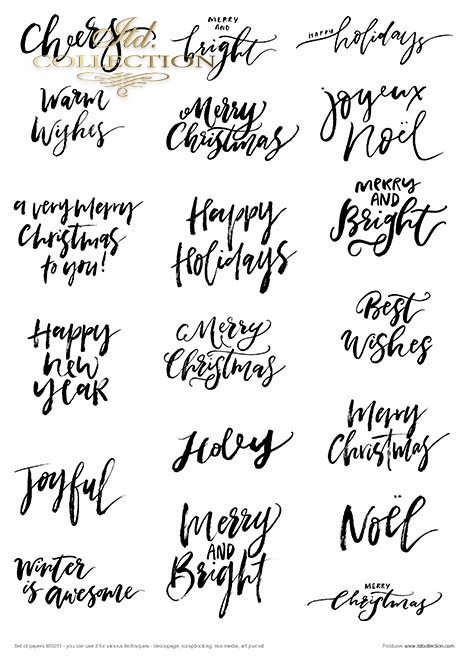 Cheers
Itd.
COLLECTION
MERRY
AND
bright
HAPPY holidays
Warm
Wishes
Merry
Christmas
joyeux
Noël
a very merry
Christmas
to you!
Happy
Holidays
MERRY
AND
Bright
Happy
new
year
Merry
Christmas
Best
Wishes
Joyful
Holly
Merry
Christmas
Winter
is awesome
Merry
AND
Bright
Noël
MERRY
Christmas
Set of papers MS011 - you can use it for various techniques - decoupage, scrapbooking, mix media, art journal
Producer www.itdcollection.com